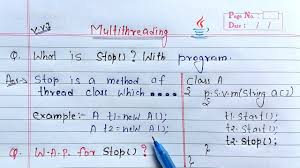 V.V.I
Multithreading
Java
Page No.
Date: / /
Q. What is Stop()? With program.
Ans:- Stop is a method of
thread class which ....
example:- A t1=new A();
A t2=new A();
Class A
{
p.s.v.m(String a[])
{
t1.Start();
t2.Start();
t2.Stop();
}
}
Q. W.A.P. for Stop()?